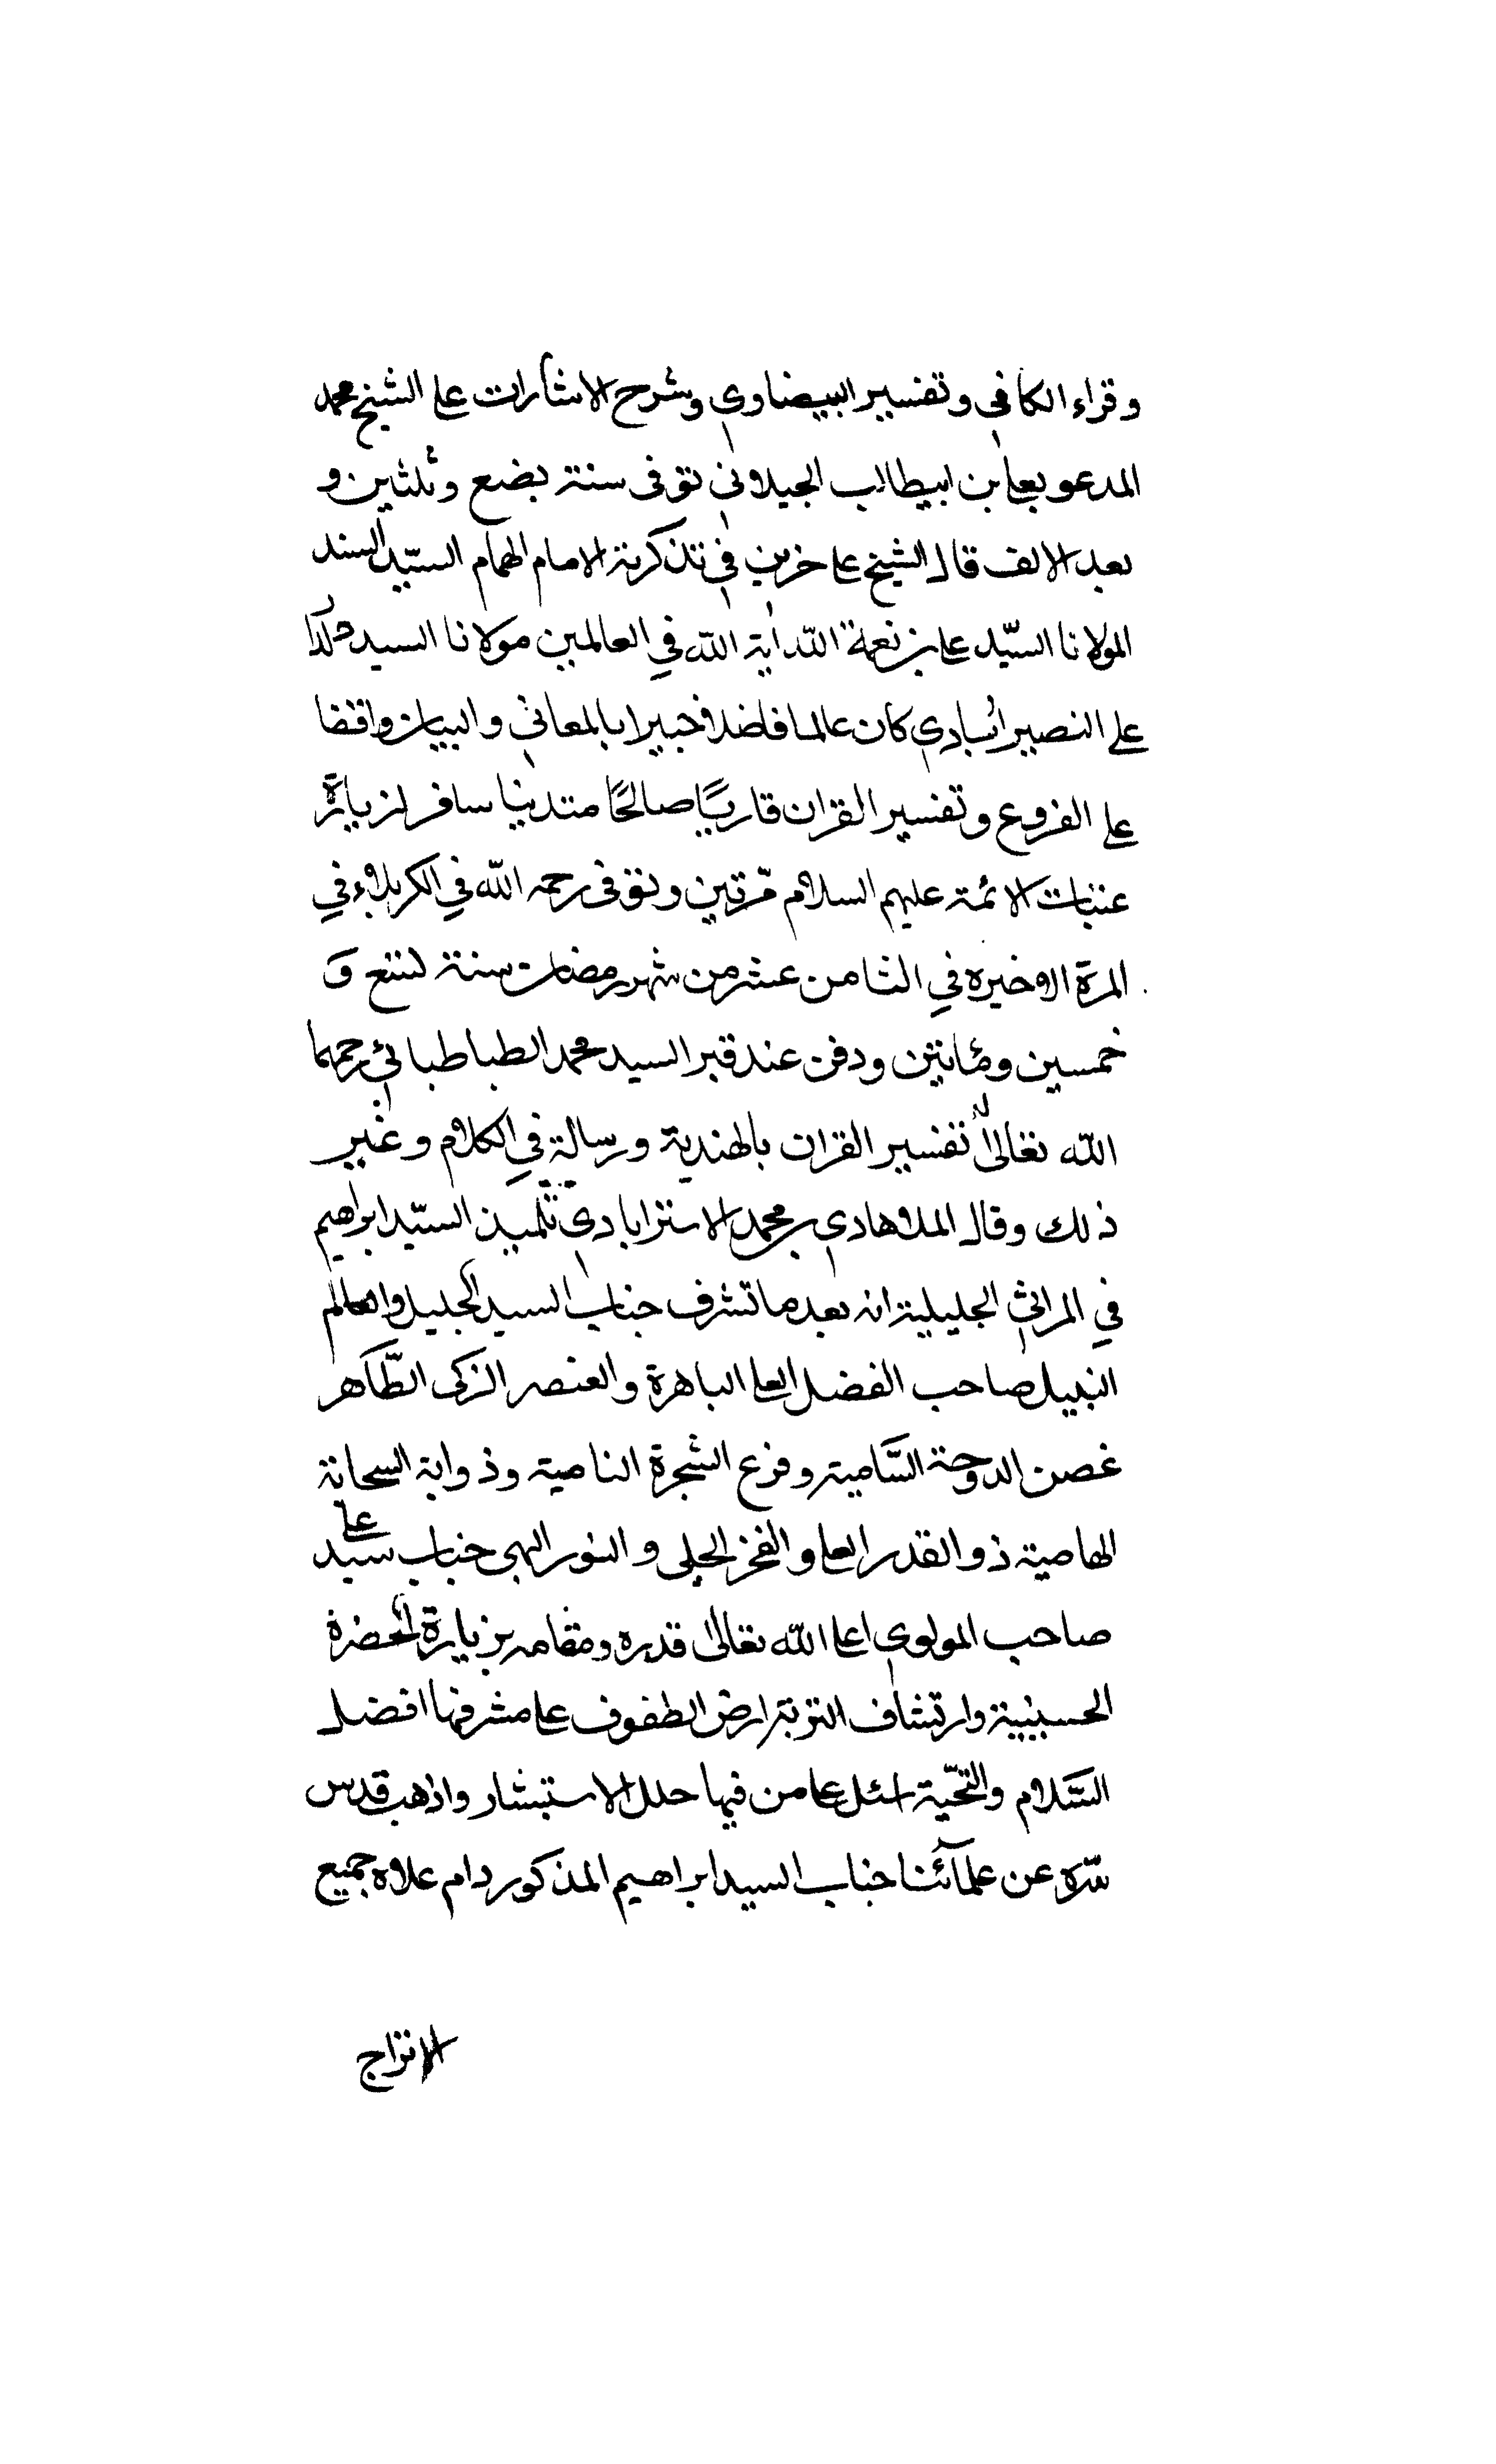 وقراء الكافي وتفسير البيضاوي وشرح الاشارات على الشيخ محمد
المدعو بعلي بن ابيطالب الجيلاني توفى سنة بضع وثلثين و
بعد الالف قال الشيخ على حزين في تذكرته الامام الهمام السيّد السند
المولانا السيّد على بن نعمة الله اية الله في العالمين مولانا السيد دلدار
على النصيرابادي كان عالما فاضلا خبيرا بالمعاني والبيان واقفا
على الفروع وتفسير القران قاريًا صالحًا متدينا سافر لزيارة
عتبات الائمة عليهم السلام مرّتين وتوفى رحمه الله في الكربلاء في
المرة الاخيرة في الثامن عشر من شهر رمضان سنة تسع و
خمسين ومأتين ودفن عند قبر السيد محمد الطباطبائي رحمهما
الله تعالى له تفسير القران بالهندية ورسالة في الكلام وغير
ذلك وقال الملا هادي بن محمد الاسترابادي تلميذ السيّد ابراهيم
في المراثي الجليلية انه بعد ما تشرف جناب السيد الجليل والعالم
النبيل صاحب الفضل العلى الباهرة والعنصر الزكى الطّاهر
غصن الدوحة السّامية وفرع الشجرة النامية وذوابة السحابة
الهامية ذو القدر العلى والفخر الجلى والنور البهى جناب سيد على
صاحب المولوي اعلى الله تعالى قدره ومقامه بزيارة الحضرة
الحسينية وارتشاف التربة ارض الطفوف على مشرفها افضل
السّلام والتحيّة على من فيها حلل الاستبشار واذهب قدس
سّره عن علمآئنا جناب السيد ابراهيم المذكور دام علاه جميع